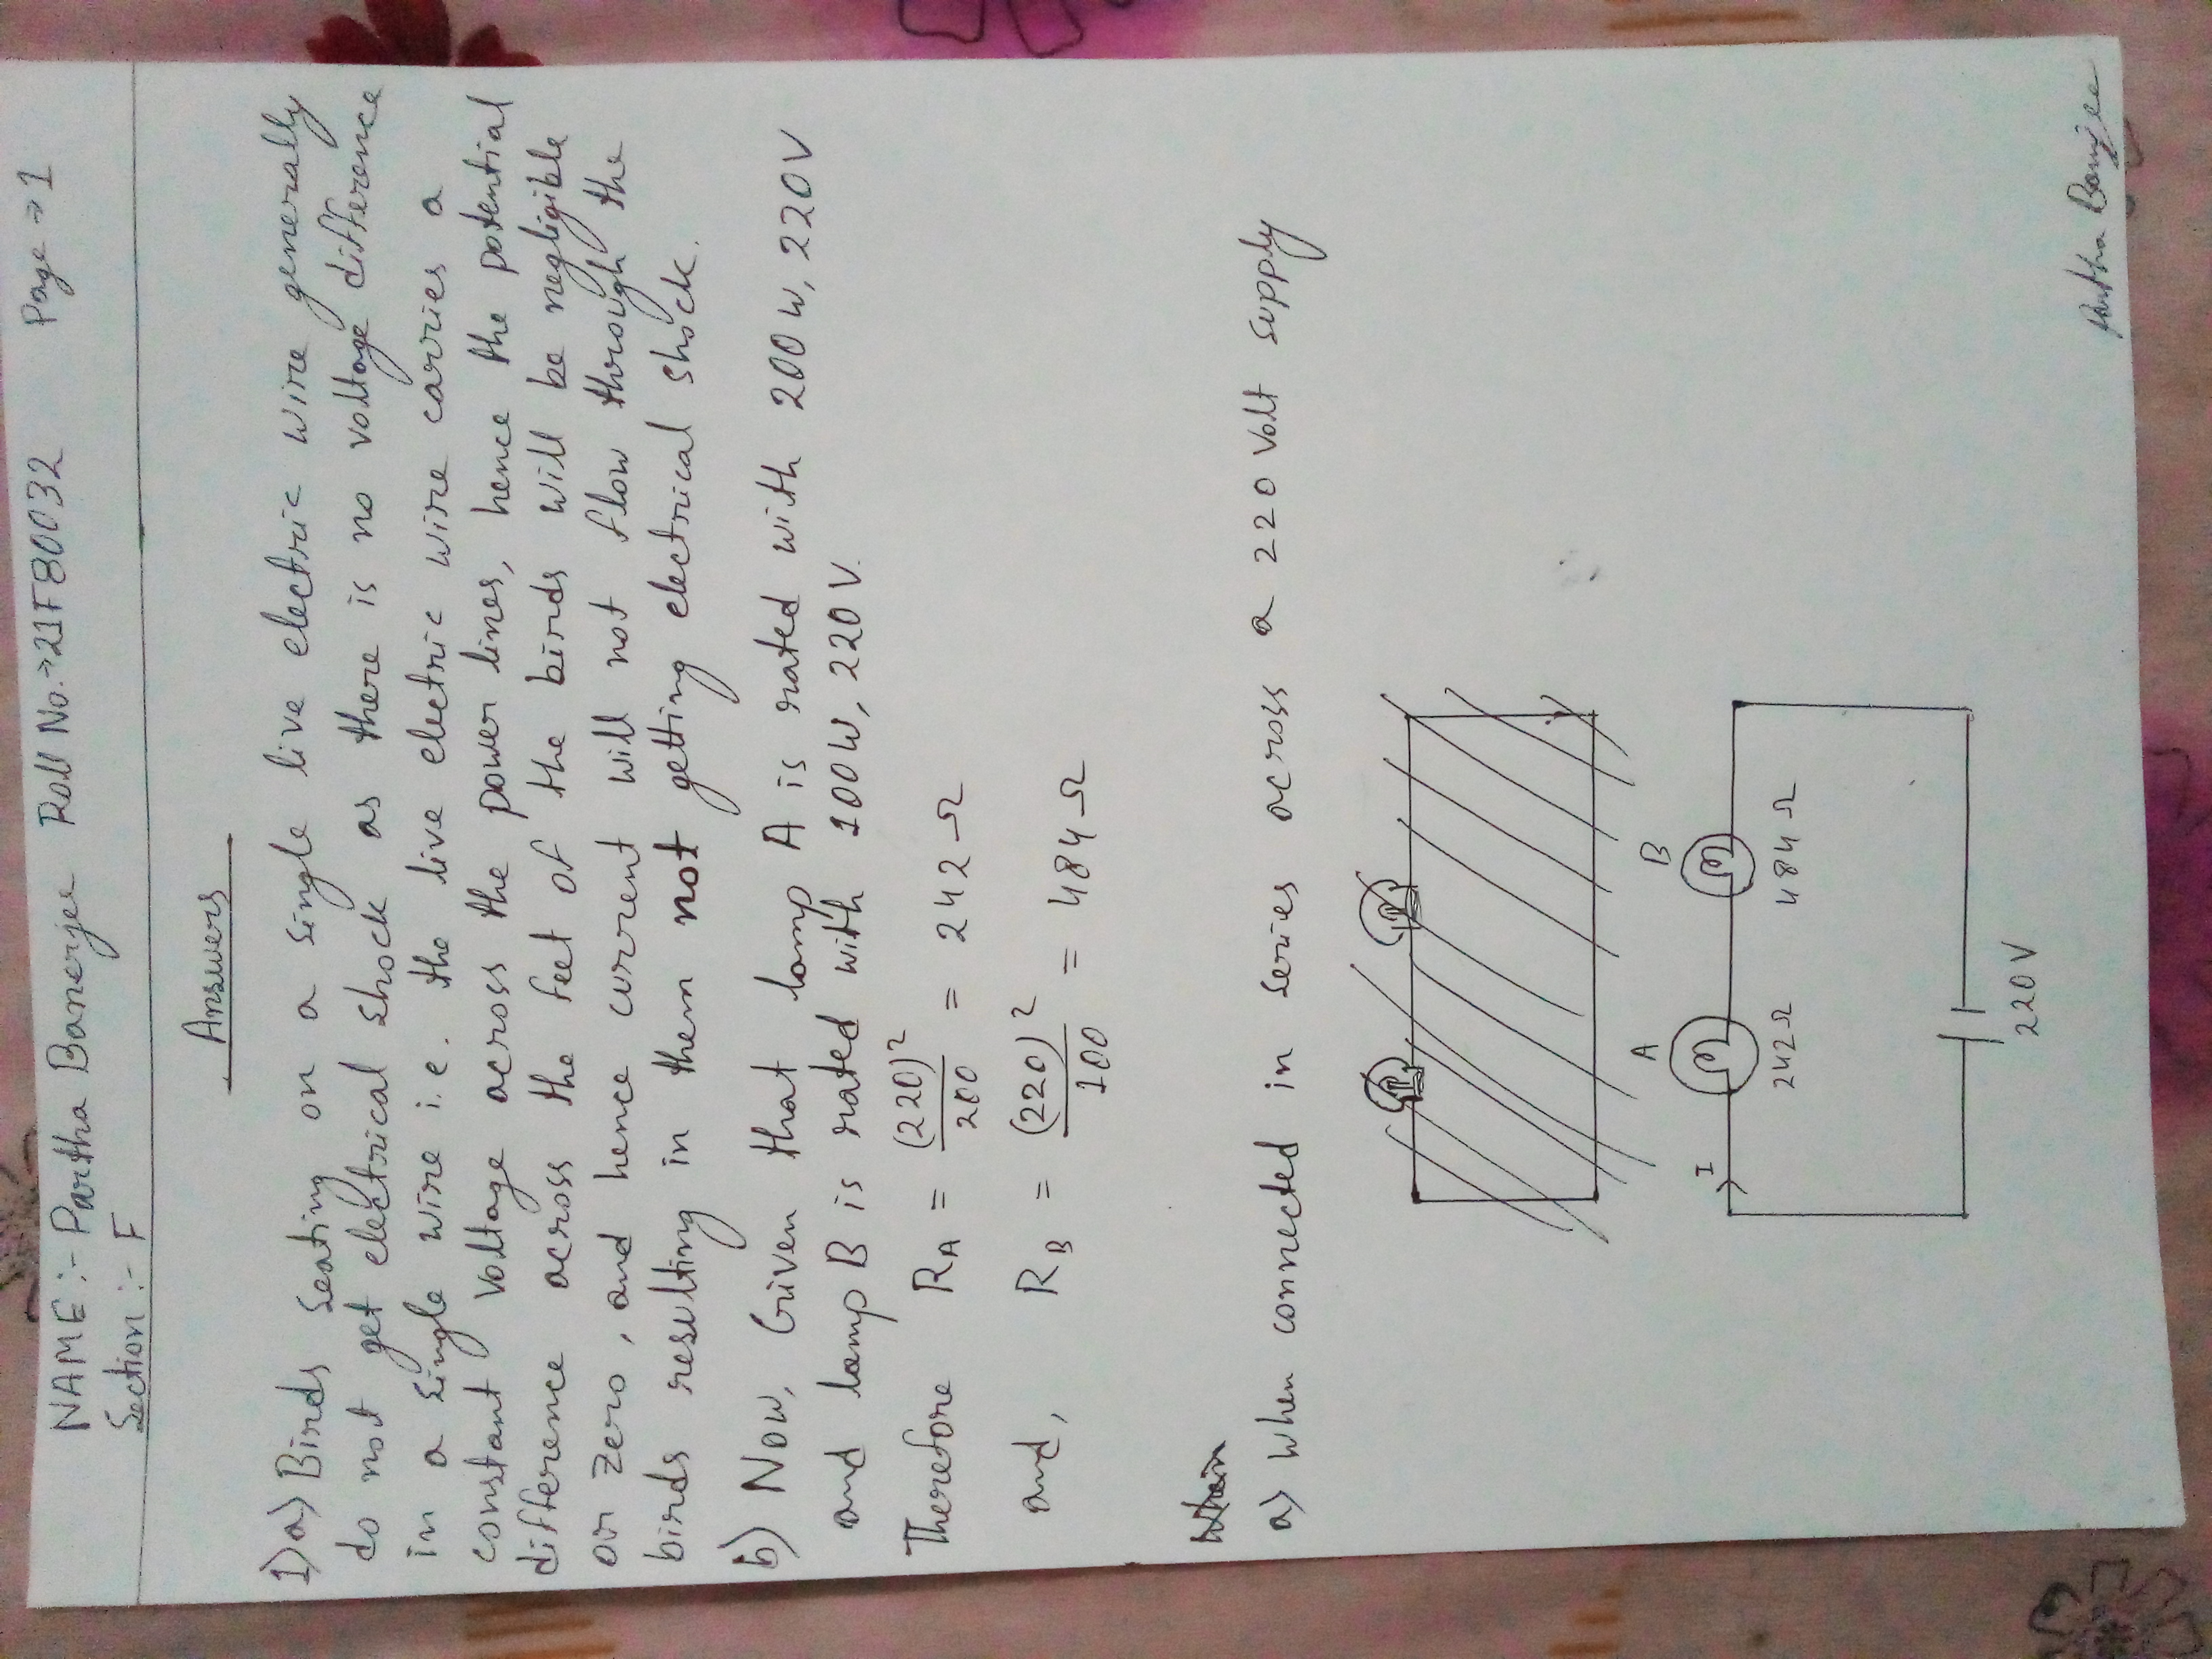 NAME :- Partha Banerjee Roll No.→21F80032 Page → 1
Section :- F
Answers
1) a) Birds seating on a single live electric wire generally
do not get electrical shock as there is no voltage difference
in a single wire i.e. the live electric wire carries a
constant voltage across the power lines, hence the potential
difference across the feet of the birds will be negligible
or zero, and hence current will not flow through the
birds resulting in them not getting electrical shock.
b) Now, Given that lamp A is rated with 200 W, 220V
and lamp B is rated with 100W, 220 V.
Therefore R_A = (220)²/200 = 242 Ω
and, R_B = (220)²/100 = 484 Ω
a) When connected in series across a 220 Volt supply
A B
I
242 Ω 484 Ω
220 V
Partha Banerjee